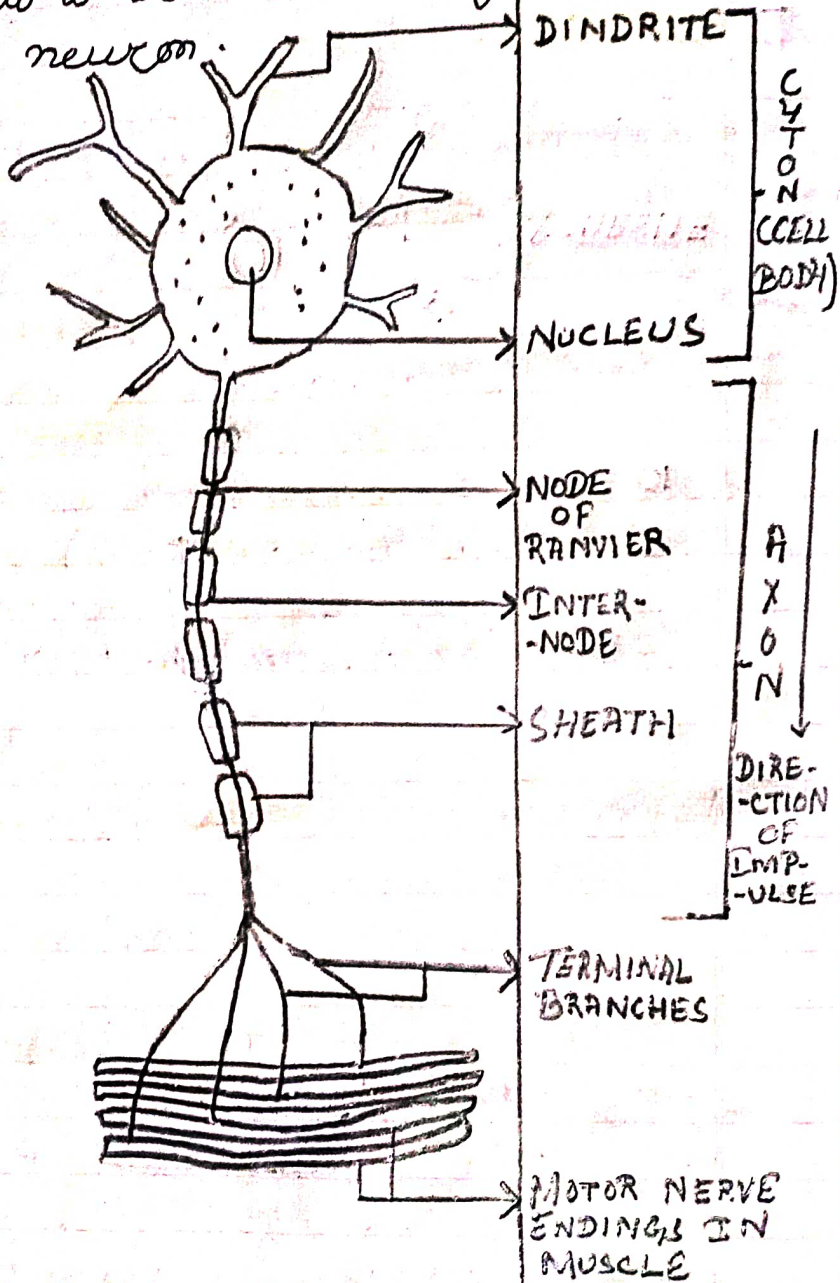 neuron.
DINDRITE
CYTON
(CELL
BODY)
NUCLEUS
NODE
OF
RANVIER
INTER-
-NODE
SHEATH
AXON
DIRE-
-CTION
OF
IMP-
-ULSE
TERMINAL
BRANCHES
MOTOR NERVE
ENDINGS IN
MUSCLE